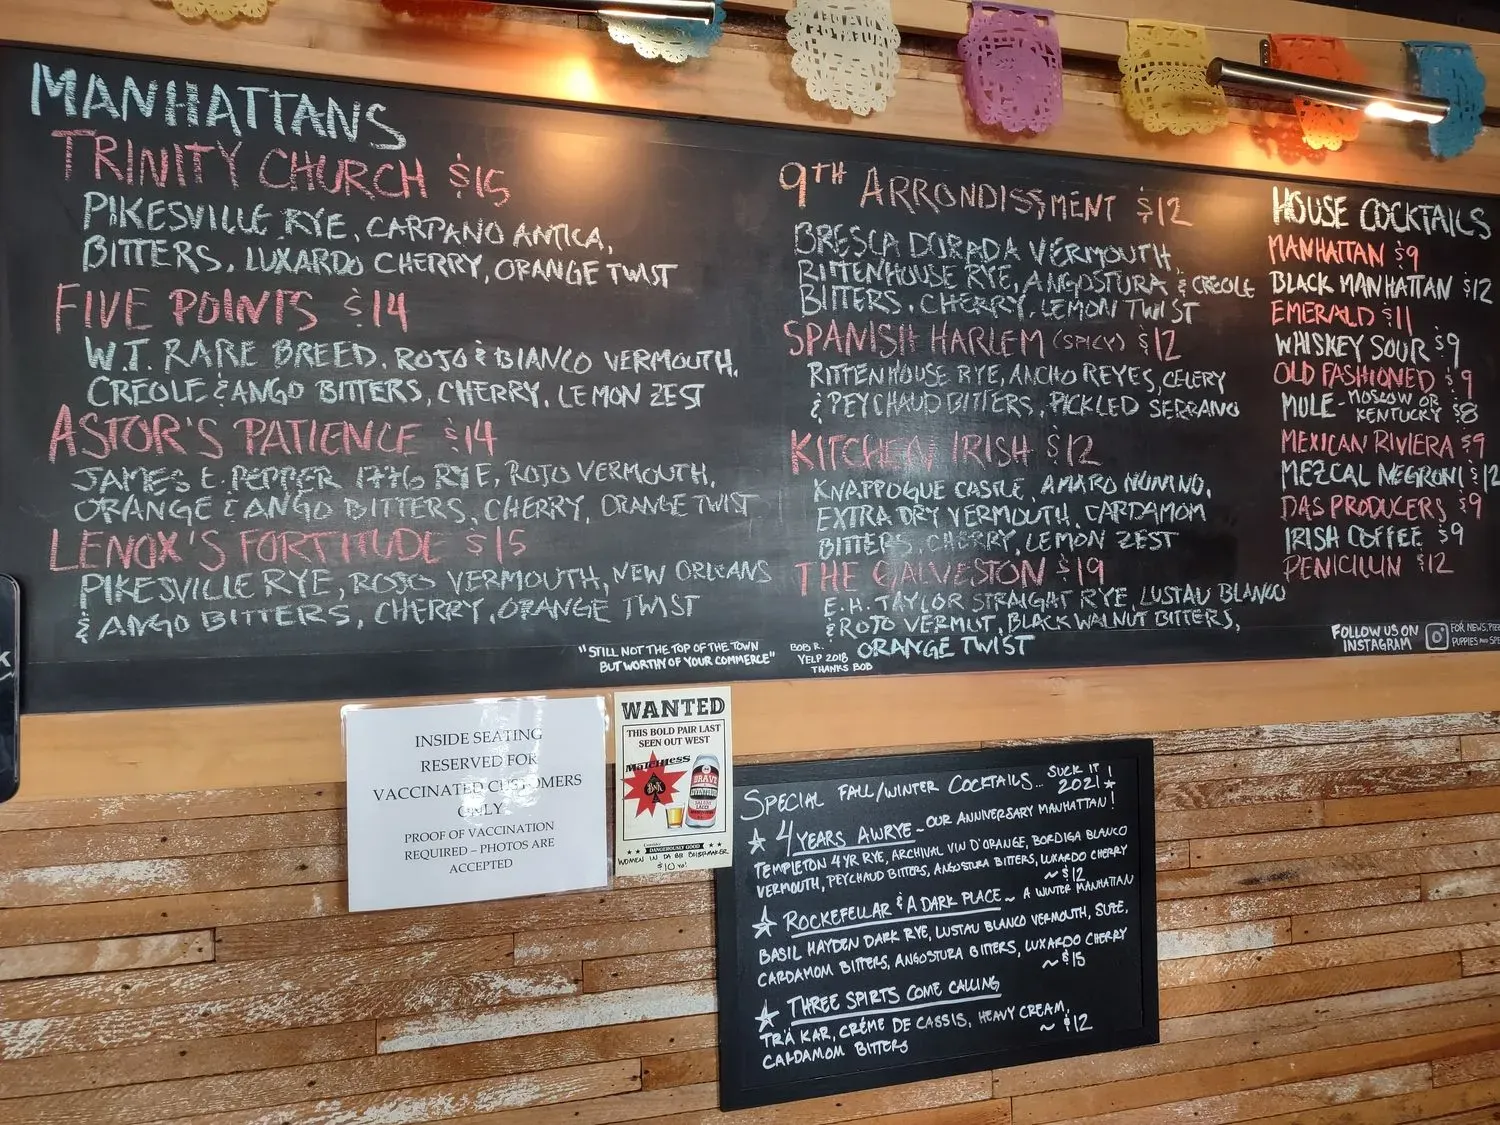 MANHATTANS
TRINITY CHURCH $15
PIKESVILLE RYE, CARPANO ANTICA,
BITTERS, LUXARDO CHERRY, ORANGE TWIST
FIVE POINTS $14
W.T. RARE BREED, ROJO & BIANCO VERMOUTH,
CREOLE & ANGO BITTERS, CHERRY, LEMON ZEST
ASTOR'S PATIENCE $14
JAMES E. PEPPER 1776 RYE, ROJO VERMOUTH,
ORANGE & ANGO BITTERS, CHERRY, ORANGE TWIST
LENOX'S FORTITUDE $15
PIKESVILLE RYE, ROJO VERMOUTH, NEW ORLEANS
& ANGO BITTERS, CHERRY, ORANGE TWIST
"STILL NOT THE TOP OF THE TOWN
BUT WORTHY OF YOUR COMMERCE"
BOB R.
YELP 2018
THANKS BOB
9TH ARRONDISSMENT $12
BRESCA DORADA VERMOUTH,
RITTENHOUSE RYE, ANGOSTURA & CREOLE
BITTERS, CHERRY, LEMON TWIST
SPANISH HARLEM (SPICY) $12
RITTENHOUSE RYE, ANCHO REYES, CELERY
& PEYCHAUD BITTERS, PICKLED SERRANO
KITCHEN IRISH $12
KNAPPOGUE CASTLE, AMARO NONINO,
EXTRA DRY VERMOUTH, CARDAMOM
BITTERS, CHERRY, LEMON ZEST
THE GALVESTON $19
E.H. TAYLOR STRAIGHT RYE, LUSTAU BLANCO
& ROJO VERMUT, BLACK WALNUT BITTERS,
ORANGE TWIST
HOUSE COCKTAILS
MANHATTAN $9
BLACK MANHATTAN $12
EMERALD $11
WHISKEY SOUR $9
OLD FASHIONED $9
MULE - MOSCOW OR
KENTUCKY $8
MEXICAN RIVIERA $9
MEZCAL NEGRONI $12
DAS PRODUCERS $9
IRISH COFFEE $9
PENICILLIN $12
FOLLOW US ON
INSTAGRAM
FOR NEWS,
PUPPIES AND
INSIDE SEATING
RESERVED FOR
VACCINATED CUSTOMERS
ONLY.
PROOF OF VACCINATION
REQUIRED – PHOTOS ARE
ACCEPTED
WANTED
THIS BOLD PAIR LAST
SEEN OUT WEST
MATCHLESS
BRAVE
DANGEROUSLY GOOD
WOMEN IN DA BB
$10
SPECIAL FALL/WINTER COCKTAILS... SUCK IT!
2021
4 YEARS AWRYE ~ OUR ANNIVERSARY MANHATTAN!
TEMPLETON 4 YR RYE, ARCHIVAL VIN D'ORANGE, BORDIGA BLANCO
VERMOUTH, PEYCHAUD BITTERS, ANGOSTURA BITTERS, LUXARDO CHERRY
~ $12
ROCKEFELLAR & A DARK PLACE ~ A WINTER MANHATTAN
BASIL HAYDEN DARK RYE, LUSTAU BLANCO VERMOUTH, SUZE,
CARDAMOM BITTERS, ANGOSTURA BITTERS, LUXARDO CHERRY
~ $15
THREE SPIRTS COME CALLING
TRÄ KAR, CRÉME DE CASSIS, HEAVY CREAM,
CARDAMOM BITTERS ~ $12